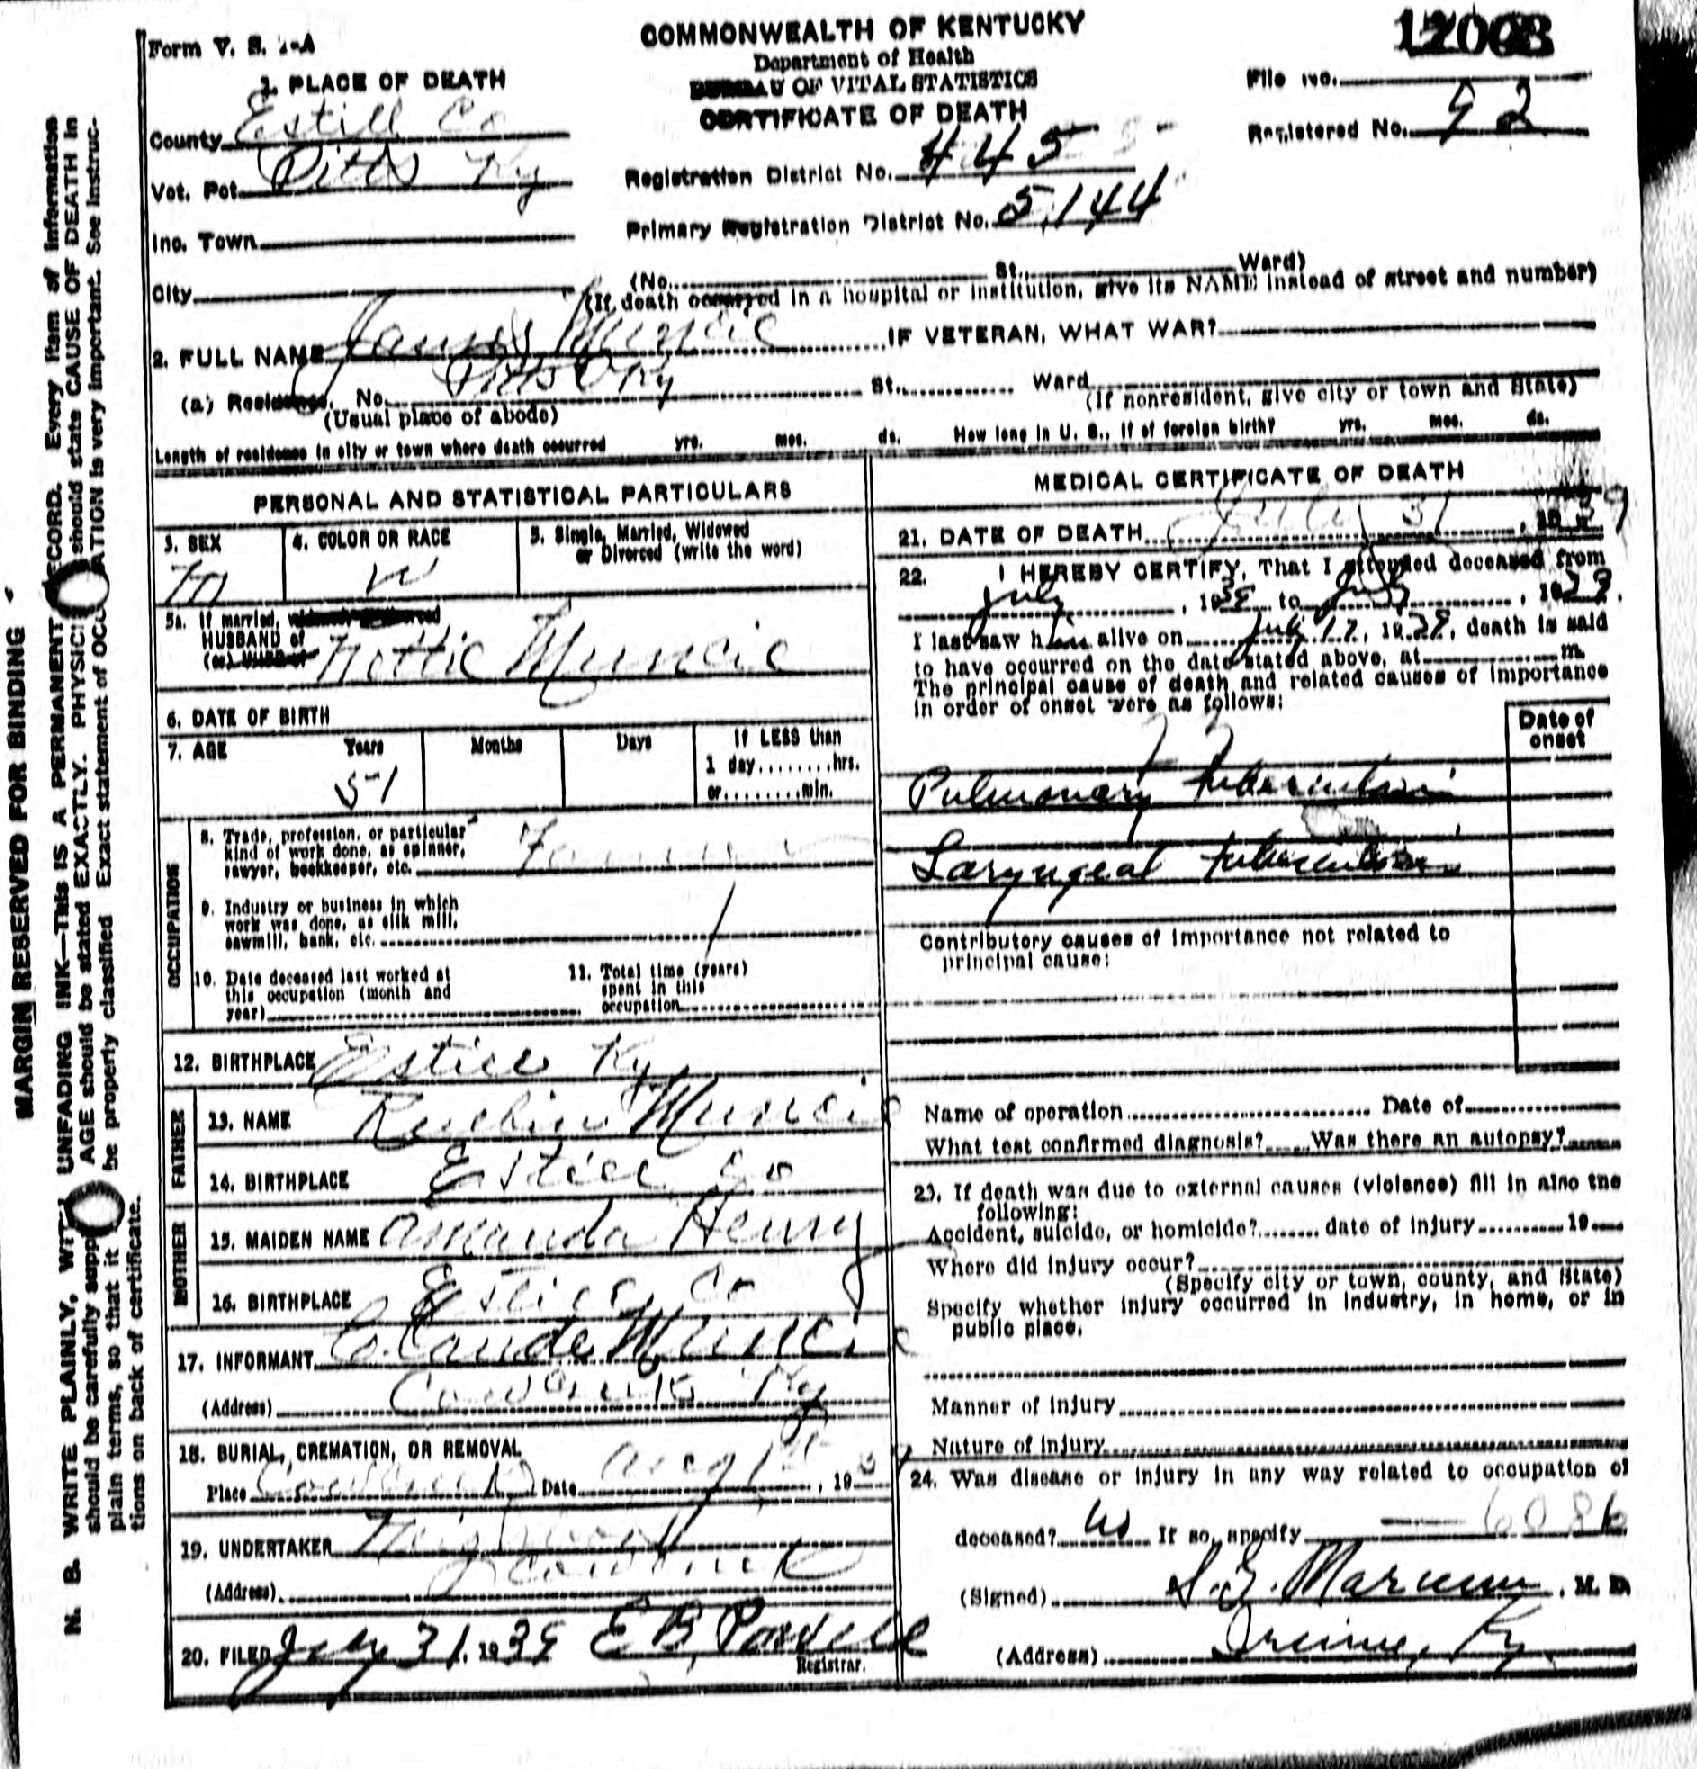 Form V. S. 1-A
COMMONWEALTH OF KENTUCKY
Department of Health
BUREAU OF VITAL STATISTICS
CERTIFICATE OF DEATH
File No.
Registered No. 92
1. PLACE OF DEATH
County Estill Co
Vot. Pct. Pitts Ky
Inc. Town
City
Registration District No. 445
Primary Registration District No. 5144
(No. St., Ward)
(If death occurred in a hospital or institution, give its NAME instead of street and number)
2. FULL NAME James Muncie IF VETERAN, WHAT WAR?
(a) Residence. No. Pitts Ky St., Ward
(Usual place of abode) (If nonresident, give city or town and State)
Length of residence in city or town where death occurred yrs. mos. ds. How long in U. S., if of foreign birth? yrs. mos. ds.
PERSONAL AND STATISTICAL PARTICULARS
3. SEX 4. COLOR OR RACE 5. Single, Married, Widowed
or Divorced (write the word)
M W
5a. If married, widowed or divorced
HUSBAND of
(or) WIFE of Nettie Muncie
6. DATE OF BIRTH
7. AGE Years Months Days If LESS than
1 day........hrs.
51 or........min.
OCCUPATION
8. Trade, profession, or particular
kind of work done, as spinner,
sawyer, bookkeeper, etc. Farmer
9. Industry or business in which
work was done, as silk mill,
sawmill, bank, etc.
10. Date deceased last worked at
this occupation (month and
year)
11. Total time (years)
spent in this
occupation
12. BIRTHPLACE Estill Ky
FATHER
13. NAME Muncie
14. BIRTHPLACE Estill Co
MOTHER
15. MAIDEN NAME Amanda Henry
16. BIRTHPLACE Estill Co
17. INFORMANT Claude Muncie
(Address) Ky
18. BURIAL, CREMATION, OR REMOVAL
Place Date Aug 1st, 193
19. UNDERTAKER
(Address)
20. FILED July 31, 1939 E B Powell
Registrar.
MEDICAL CERTIFICATE OF DEATH
21. DATE OF DEATH July 31, 1939
22. I HEREBY CERTIFY, That I attended deceased from
July, 1939 to July, 1939.
I last saw him alive on July 17, 1939, death is said
to have occurred on the date stated above, at m.
The principal cause of death and related causes of importance
in order of onset were as follows:
Date of
onset
Pulmonary Tuberculosis
Laryngeal Tuberculosis
Contributory causes of importance not related to
principal cause:
Name of operation Date of
What test confirmed diagnosis? Was there an autopsy?
23. If death was due to external causes (violence) fill in also the
following:
Accident, suicide, or homicide? date of injury 19
Where did injury occur?
(Specify city or town, county, and State)
Specify whether injury occurred in industry, in home, or in
public place.
Manner of injury
Nature of injury
24. Was disease or injury in any way related to occupation of
deceased? No If so, specify 6086
(Signed) Marcum, M. D.
(Address) Irvine, Ky.
MARGIN RESERVED FOR BINDING
N. B. WRITE PLAINLY, WITH UNFADING INK—THIS IS A PERMANENT RECORD. Every item of information
should be carefully supplied. AGE should be stated EXACTLY. PHYSICIANS should state CAUSE OF DEATH in
plain terms, so that it may be properly classified. Exact statement of OCCUPATION is very important. See instruc-
tions on back of certificate.